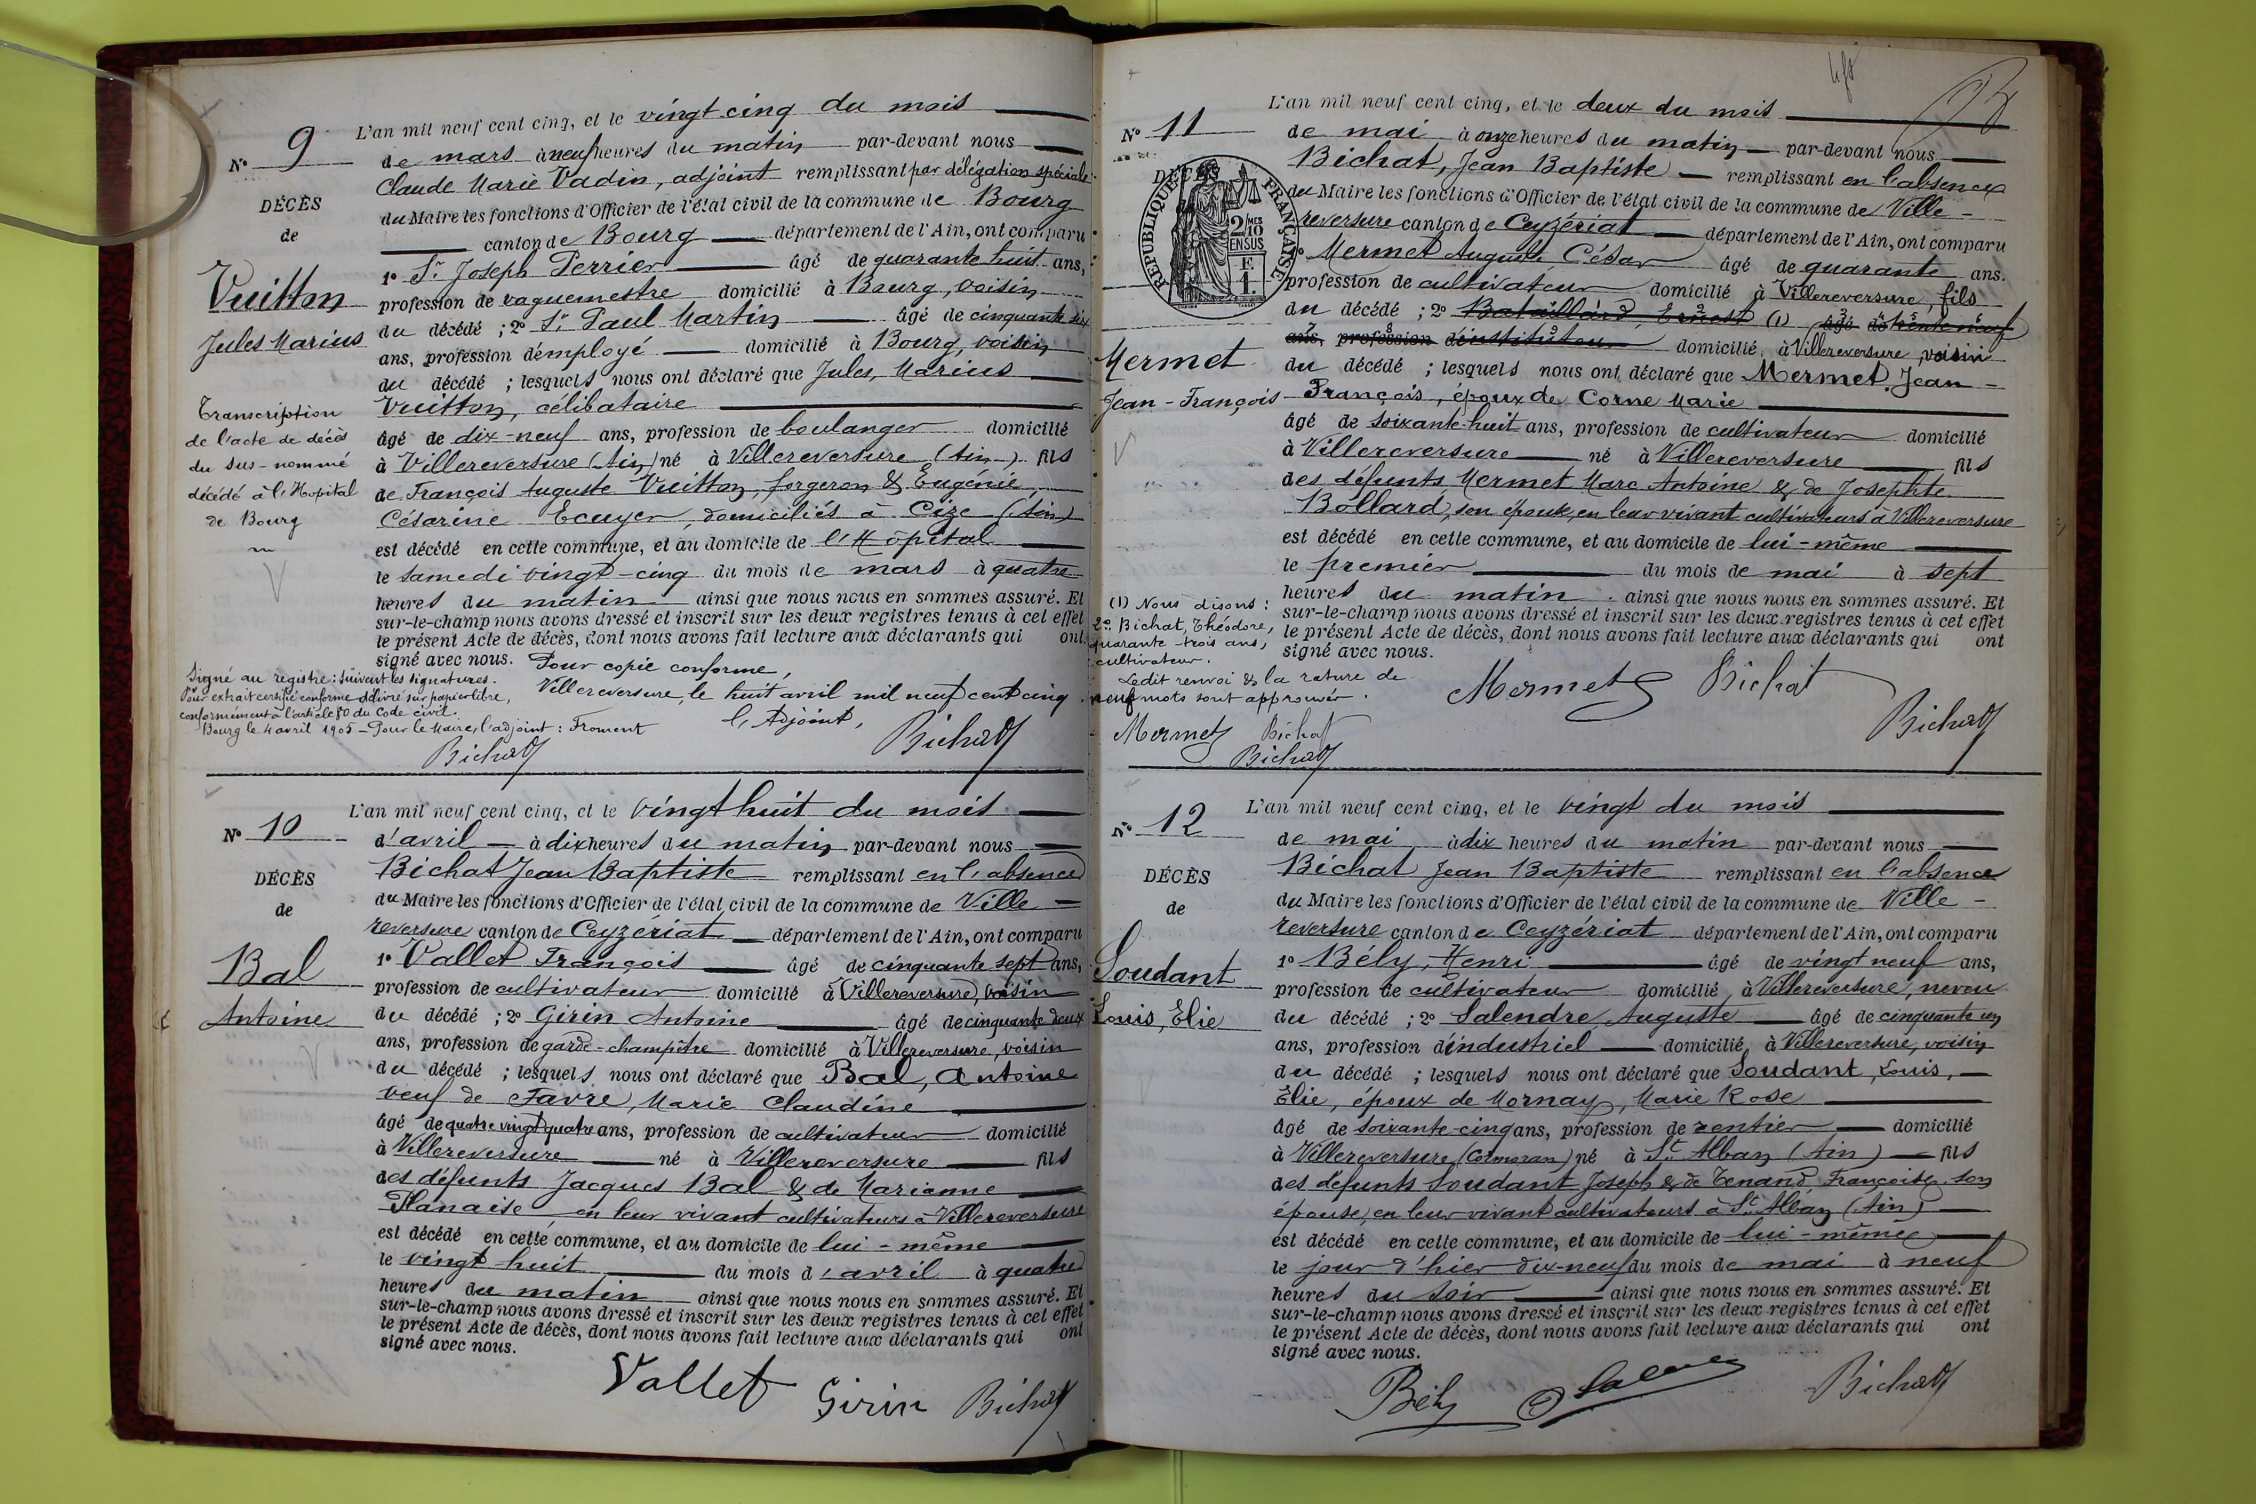 N° 9
DÉCÈS
de
Vuitton
Jules Marius
Transcription
de l'acte de décès
du sus-nommé
décédé à l'Hopital
de Bourg
L'an mil neuf cent cinq, et le vingt cinq du mois
de mars à neuf heures du matin par-devant nous
Claude Marie Vadin, adjoint remplissant par délégation spéciale
du Maire les fonctions d'Officier de l'état civil de la commune de Bourg
canton de Bourg département de l'Ain, ont comparu
1° Sr Joseph Perrier âgé de quarante huit ans,
profession de vaguemestre domicilié à Bourg, voisin
du décédé ; 2° Sr Paul Martin âgé de cinquante six
ans, profession d'employé domicilié à Bourg, voisin
du décédé ; lesquels nous ont déclaré que Jules, Marius
Vuitton, célibataire
âgé de dix-neuf ans, profession de boulanger domicilié
à Villereversure (Ain) né à Villereversure (Ain) fils
de François Auguste Vuitton, forgeron & Eugénie
Césarine Ecuyer, domiciliés à Cize (Ain)
est décédé en cette commune, et au domicile de l'Hôpital
le samedi vingt-cinq du mois de mars à quatre
heures du matin ainsi que nous nous en sommes assuré. Et
sur-le-champ nous avons dressé et inscrit sur les deux registres tenus à cet effet
le présent Acte de décès, dont nous avons fait lecture aux déclarants qui ont
signé avec nous. Pour copie conforme,
Villereversure, le huit avril mil neuf cent cinq
l'Adjoint,
Bichat
Signé au registre : suivent les signatures.
Pour extrait certifié conforme délivré sur papier libre,
conformément à l'article 80 du Code civil.
Bourg le 4 avril 1905 - Pour le Maire, l'adjoint : Froment
Bichat
N° 10
DÉCÈS
de
Bal
Antoine
L'an mil neuf cent cinq, et le vingt huit du mois
d'avril à dix heures du matin par-devant nous
Bichat Jean Baptiste remplissant en l'absence
du Maire les fonctions d'Officier de l'état civil de la commune de Ville-
reversure canton de Ceyzériat département de l'Ain, ont comparu
1° Vallet François âgé de cinquante sept ans,
profession de cultivateur domicilié à Villereversure, voisin
du décédé ; 2° Girin Antoine âgé de cinquante deux
ans, profession de garde-champêtre domicilié à Villereversure, voisin
du décédé ; lesquels nous ont déclaré que Bal, Antoine
veuf de Favre, Marie Claudine
âgé de quatre vingt quatre ans, profession de cultivateur domicilié
à Villereversure né à Villereversure fils
des défunts Jacques Bal & de Marianne
Planaise en leur vivant cultivateurs à Villereversure
est décédé en cette commune, et au domicile de lui-même
le vingt huit du mois d'avril à quatre
heures du matin ainsi que nous nous en sommes assuré. Et
sur-le-champ nous avons dressé et inscrit sur les deux registres tenus à cet effet
le présent Acte de décès, dont nous avons fait lecture aux déclarants qui ont
signé avec nous.
Vallet Girin Bichat
N° 11
DÉCÈS
RÉPUBLIQUE FRANÇAISE
2/10 MES
EN SUS
F.
1.
Mermet
Jean-François
L'an mil neuf cent cinq, et le deux du mois
de mai à onze heures du matin par-devant nous
Bichat, Jean Baptiste remplissant en l'absence
du Maire les fonctions d'Officier de l'état civil de la commune de Ville-
reversure canton de Ceyzériat département de l'Ain, ont comparu
1° Mermet Auguste César âgé de quarante ans.
profession de cultivateur domicilié à Villereversure, fils
du décédé ; 2° Bataillard, Ernest (1) âgé de trente neuf
ans, profession d'instituteur domicilié à Villereversure, voisin
du décédé ; lesquels nous ont déclaré que Mermet Jean-
François, époux de Corne Marie
âgé de soixante-huit ans, profession de cultivateur domicilié
à Villereversure né à Villereversure fils
des défunts Mermet Marc Antoine & de Josephte
Bollard, son épouse, en leur vivant cultivateurs à Villereversure
est décédé en cette commune, et au domicile de lui-même
le premier du mois de mai à sept
heures du matin ainsi que nous nous en sommes assuré. Et
sur-le-champ nous avons dressé et inscrit sur les deux registres tenus à cet effet
le présent Acte de décès, dont nous avons fait lecture aux déclarants qui ont
signé avec nous.
Mermet Bichat
Bichat
(1) Nous disons :
2° Bichat, Théodore,
quarante-trois ans,
cultivateur.
Ledit renvoi & la rature de
neuf mots sont approuvés.
Mermet Bichat
Bichat
N° 12
DÉCÈS
de
Soudant
Louis, Elie
L'an mil neuf cent cinq, et le vingt du mois
de mai à dix heures du matin par-devant nous
Bichat Jean Baptiste remplissant en l'absence
du Maire les fonctions d'Officier de l'état civil de la commune de Ville-
reversure canton de Ceyzériat département de l'Ain, ont comparu
1° Bély, Henri âgé de vingt neuf ans,
profession de cultivateur domicilié à Villereversure, neveu
du décédé ; 2° Salendre Auguste âgé de cinquante un
ans, profession d'industriel domicilié à Villereversure, voisin
du décédé ; lesquels nous ont déclaré que Soudant, Louis,
Élie, époux de Mornay, Marie Rose
âgé de soixante-cinq ans, profession de rentier domicilié
à Villereversure (Cormoran) né à St Alban (Ain) fils
des défunts Soudant Joseph & de Tenand Françoise son
épouse, en leur vivant cultivateurs à St Alban (Ain)
est décédé en cette commune, et au domicile de lui-même
le jour d'hier dix-neuf du mois de mai à neuf
heures du soir ainsi que nous nous en sommes assuré. Et
sur-le-champ nous avons dressé et inscrit sur les deux registres tenus à cet effet
le présent Acte de décès, dont nous avons fait lecture aux déclarants qui ont
signé avec nous.
Bély Bichat